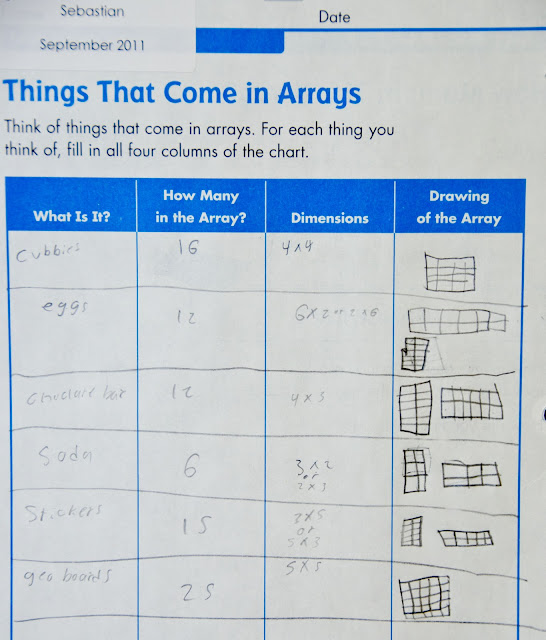 Sebastian
Date
September 2011
Things That Come in Arrays
Think of things that come in arrays. For each thing you
think of, fill in all four columns of the chart.
What Is It?
How Many
in the Array?
Dimensions
Drawing
of the Array
Cubbies 16 4x4
eggs 12 6x2 or 2x6
12
Soda 6 3x2
or
2x3
Stickers 15 3x5
or
5x3
geo boards 25 5x5